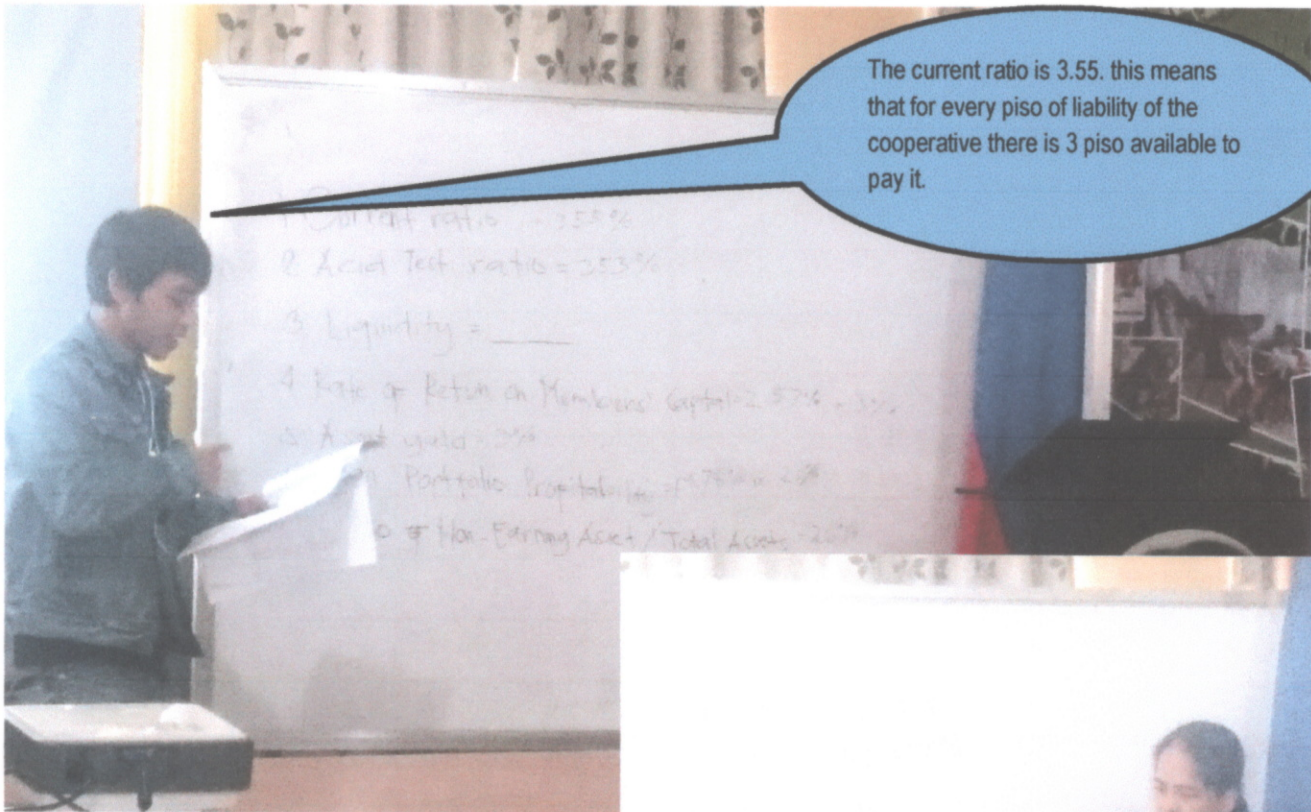 The current ratio is 3.55. this means
that for every piso of liability of the
cooperative there is 3 piso available to
pay it.
1 Current ratio = 355%
2 Acid Test ratio = 353%
3 Liquidity = ____
4 Rate of Return on Members' Capital = 2.57% = 3%
5 Asset yield = 3%
Portfolio Profitability
of Non-Earning Asset / Total Assets